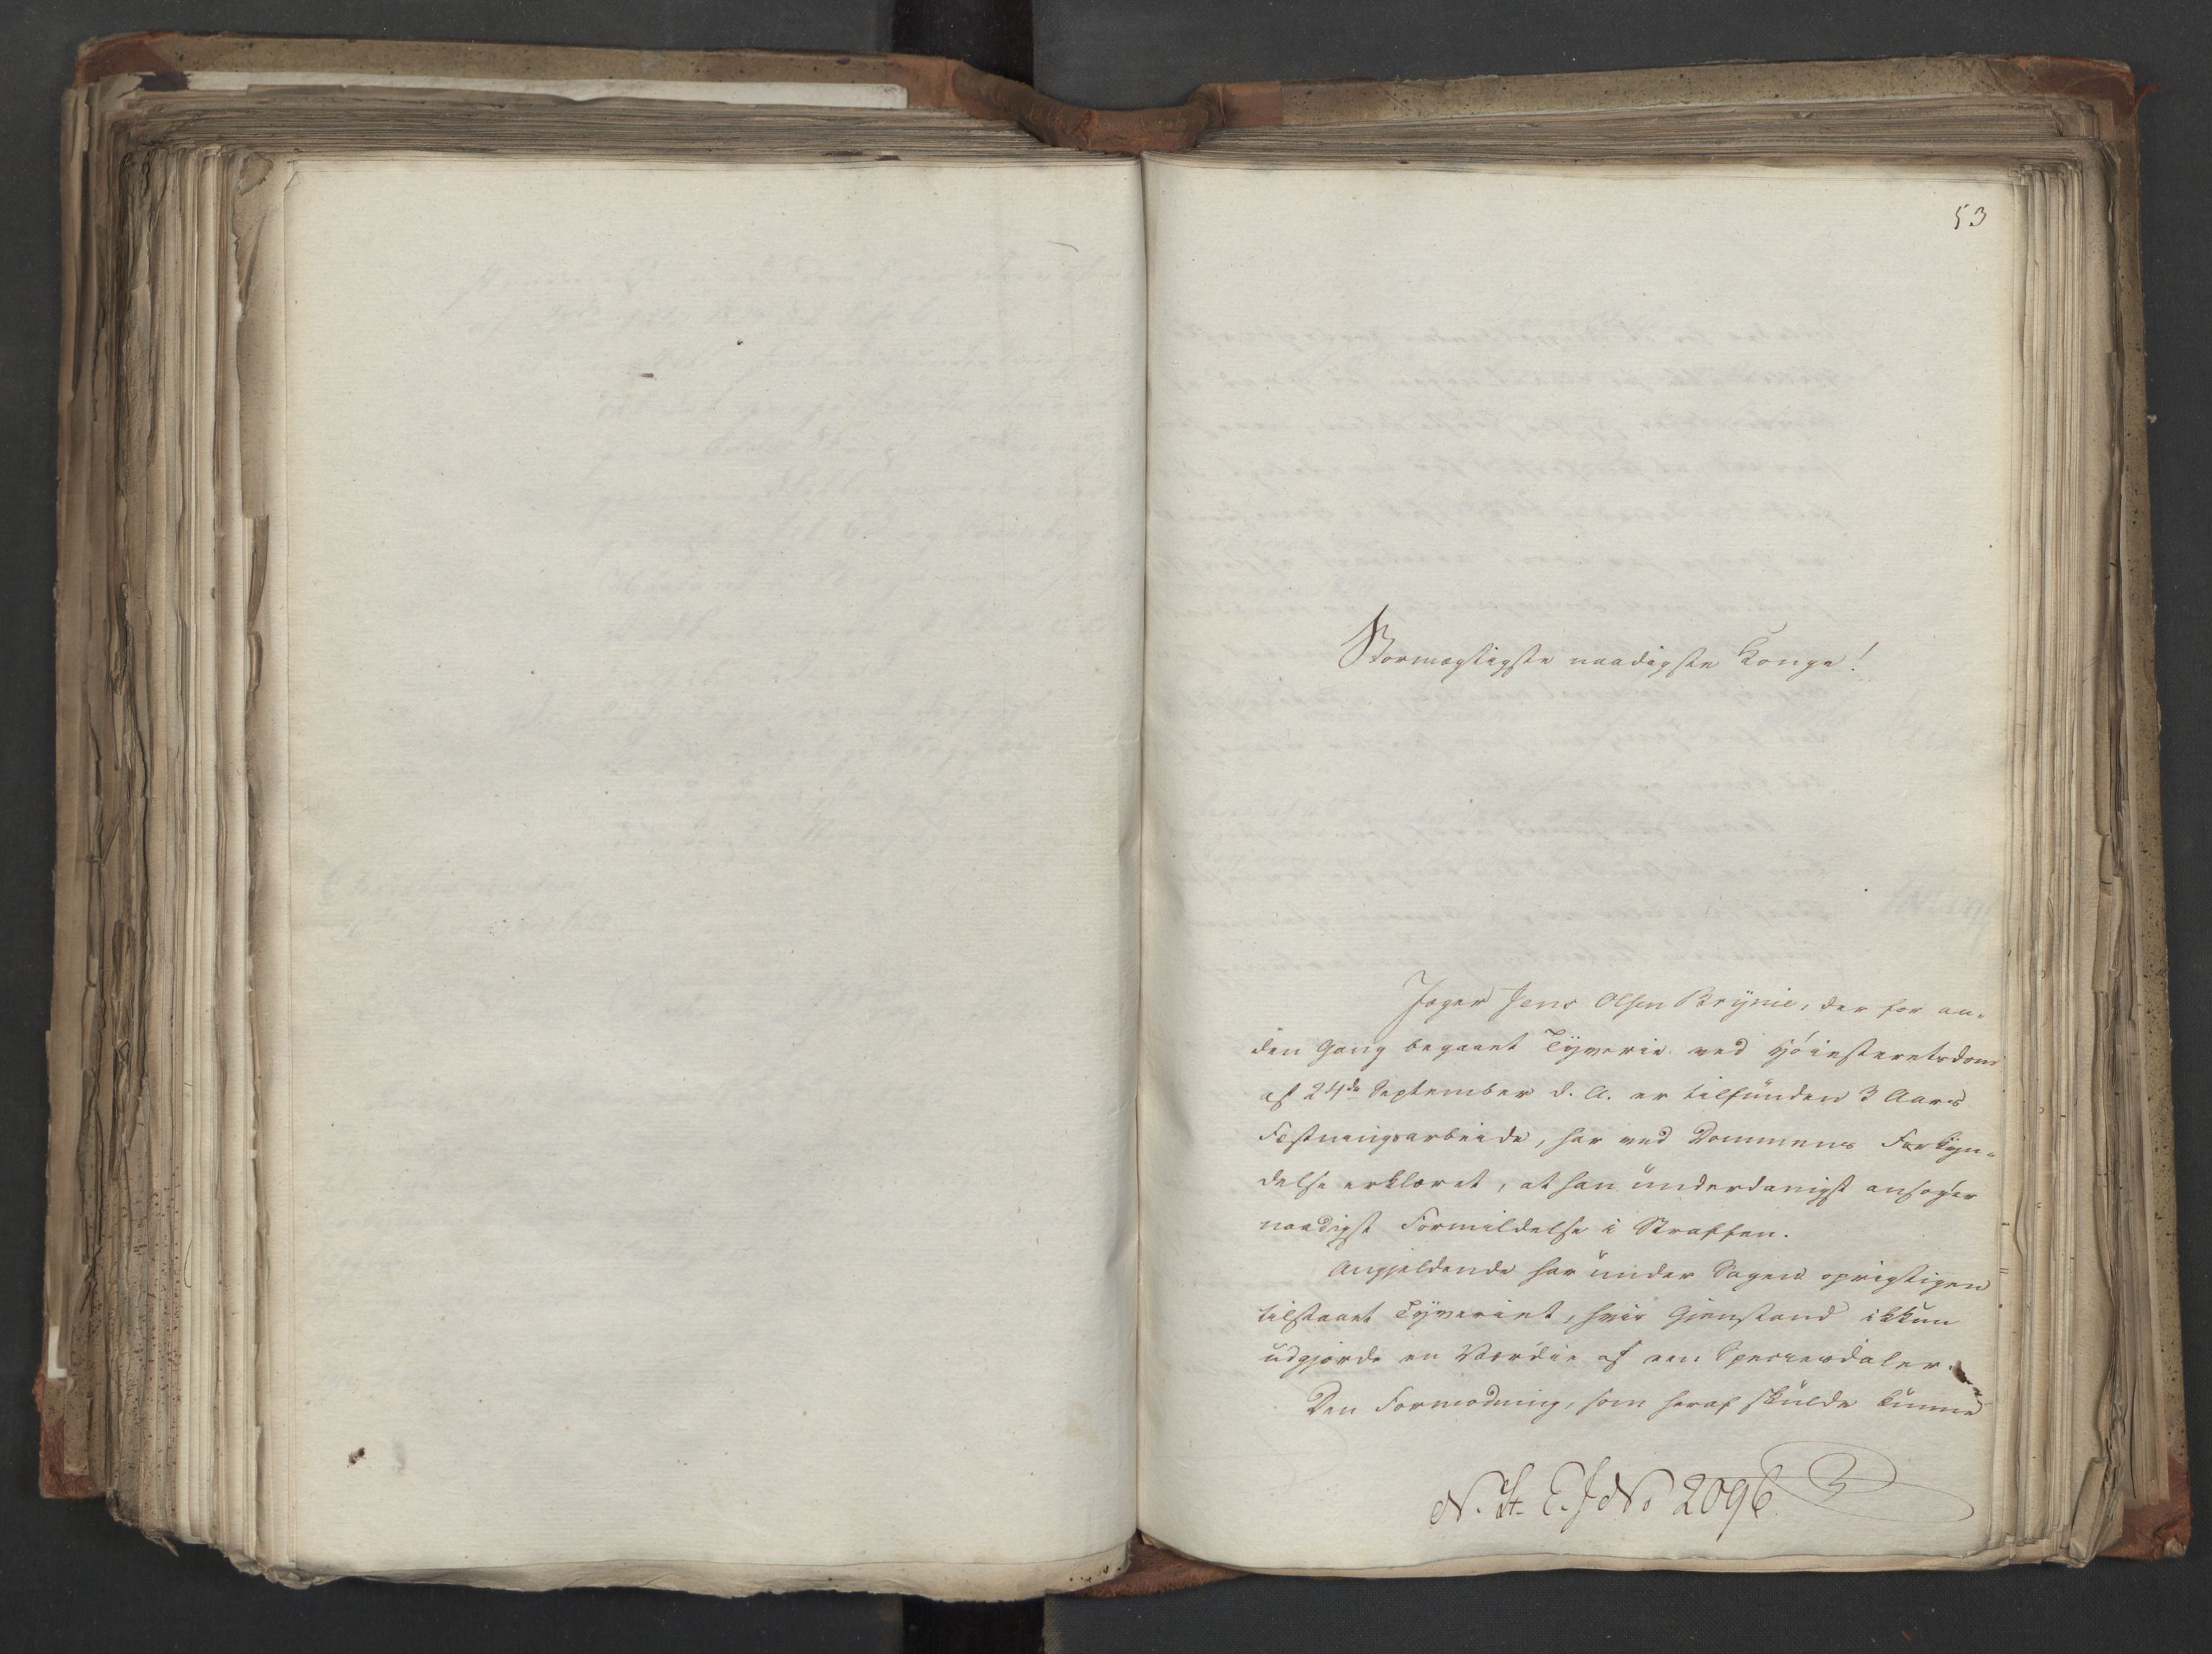 53
Stormægtigste naadigste Konge!
Jæger Jens Olsen Brynie, der for an-
den Gang begaaet Tyverie ved Høiesteretsdom
af 24de September d. A. er tilfunden 3 Aars
Fæstningsarbeide, har ved Dommens Forkyn-
delse erklæret, at han underdanigst ansøger
naadigst Formildelse i Straffen.
Angjeldende har under Sagen oprigtigen
tilstaaet Tyveriet, hvis Gjenstand ikkun
udgjorde en Værdie af een Speciesdaler.
Den Formodning, som heraf skulde kunne
N. St. E. J No 2096